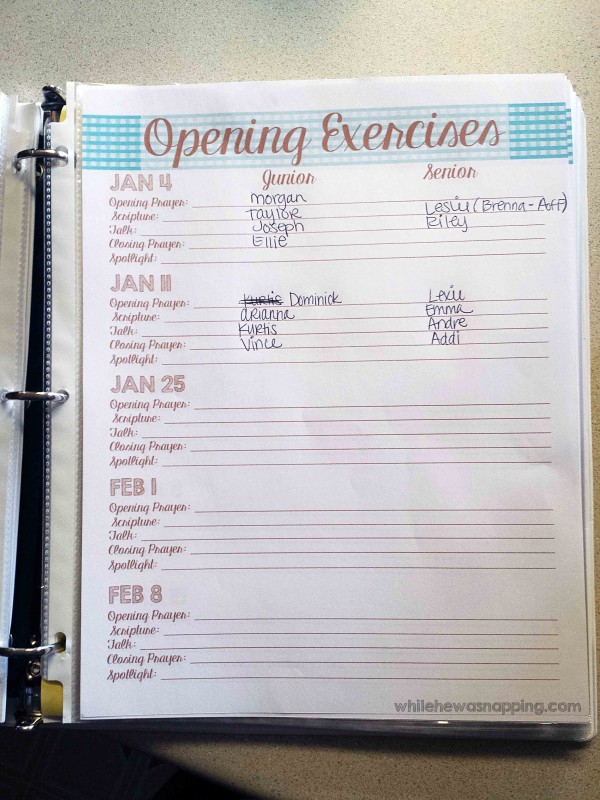 Opening Exercises
Junior Senior
JAN 4
Opening Prayer: morgan
Scripture: Taylor Leslie (Brenna-Aoff)
Talk: Joseph Riley
Closing Prayer: Ellie
Spotlight:
JAN 11
Opening Prayer: Kurtis Dominick Lexie
Scripture: arianna Emma
Talk: Kurtis Andre
Closing Prayer: Vince Addi
Spotlight:
JAN 25
Opening Prayer:
Scripture:
Talk:
Closing Prayer:
Spotlight:
FEB 1
Opening Prayer:
Scripture:
Talk:
Closing Prayer:
Spotlight:
FEB 8
Opening Prayer:
Scripture:
Talk:
Closing Prayer:
Spotlight:
whilehewasnapping.com